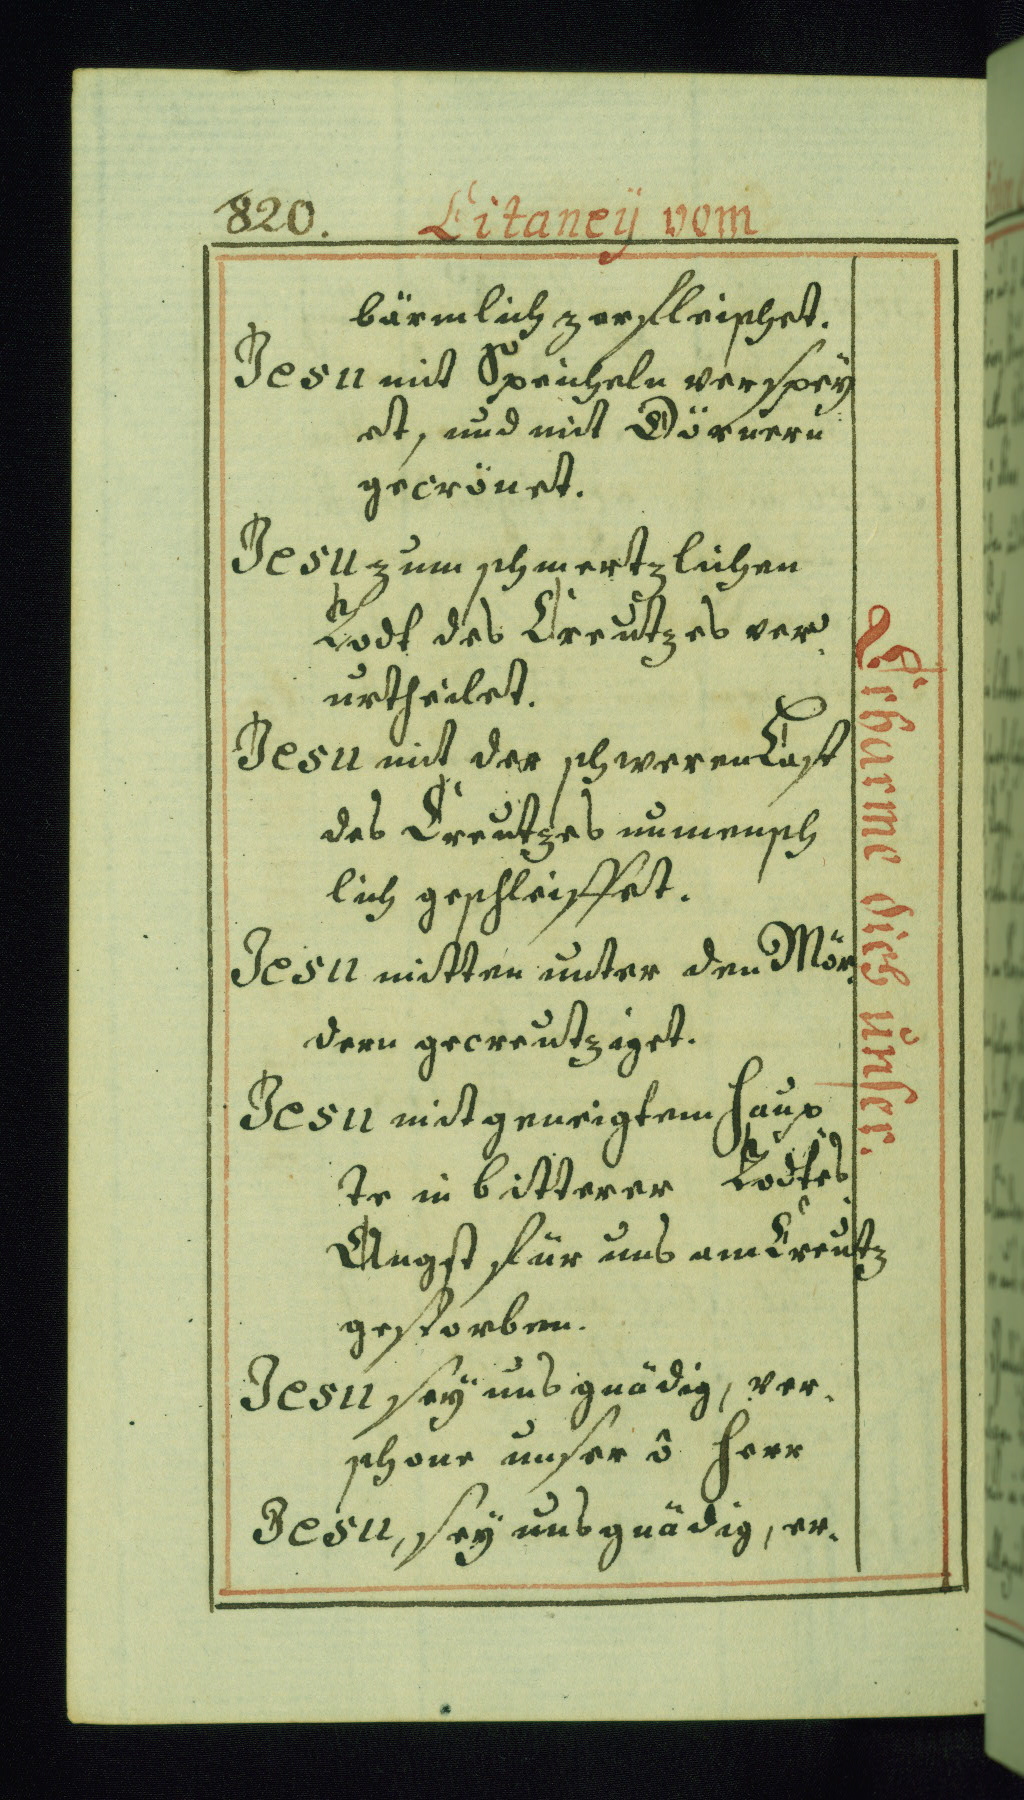 820. Litaneÿ vom
bärmlich zerfleischet.
Jesu mit Speicheln verspeÿ
et, und mit Dörnern
gecrönet.
Jesu zum schmertzlichen
Todt des Creutzes ver-
urtheilet.
Jesu mit der schweren Last
des Creutzes unmensch
lich geschleiffet.
Jesu mitten unter den Mör-
dern gecreutziget.
Jesu mit geneigtem Haup
te in bitterer Todtes
Angst für uns am Creutz
gestorben.
Jesu seÿ uns gnädig, ver-
schone unser ô Herr
Jesu, seÿ uns gnädig, er-
Erbarme dich unser.